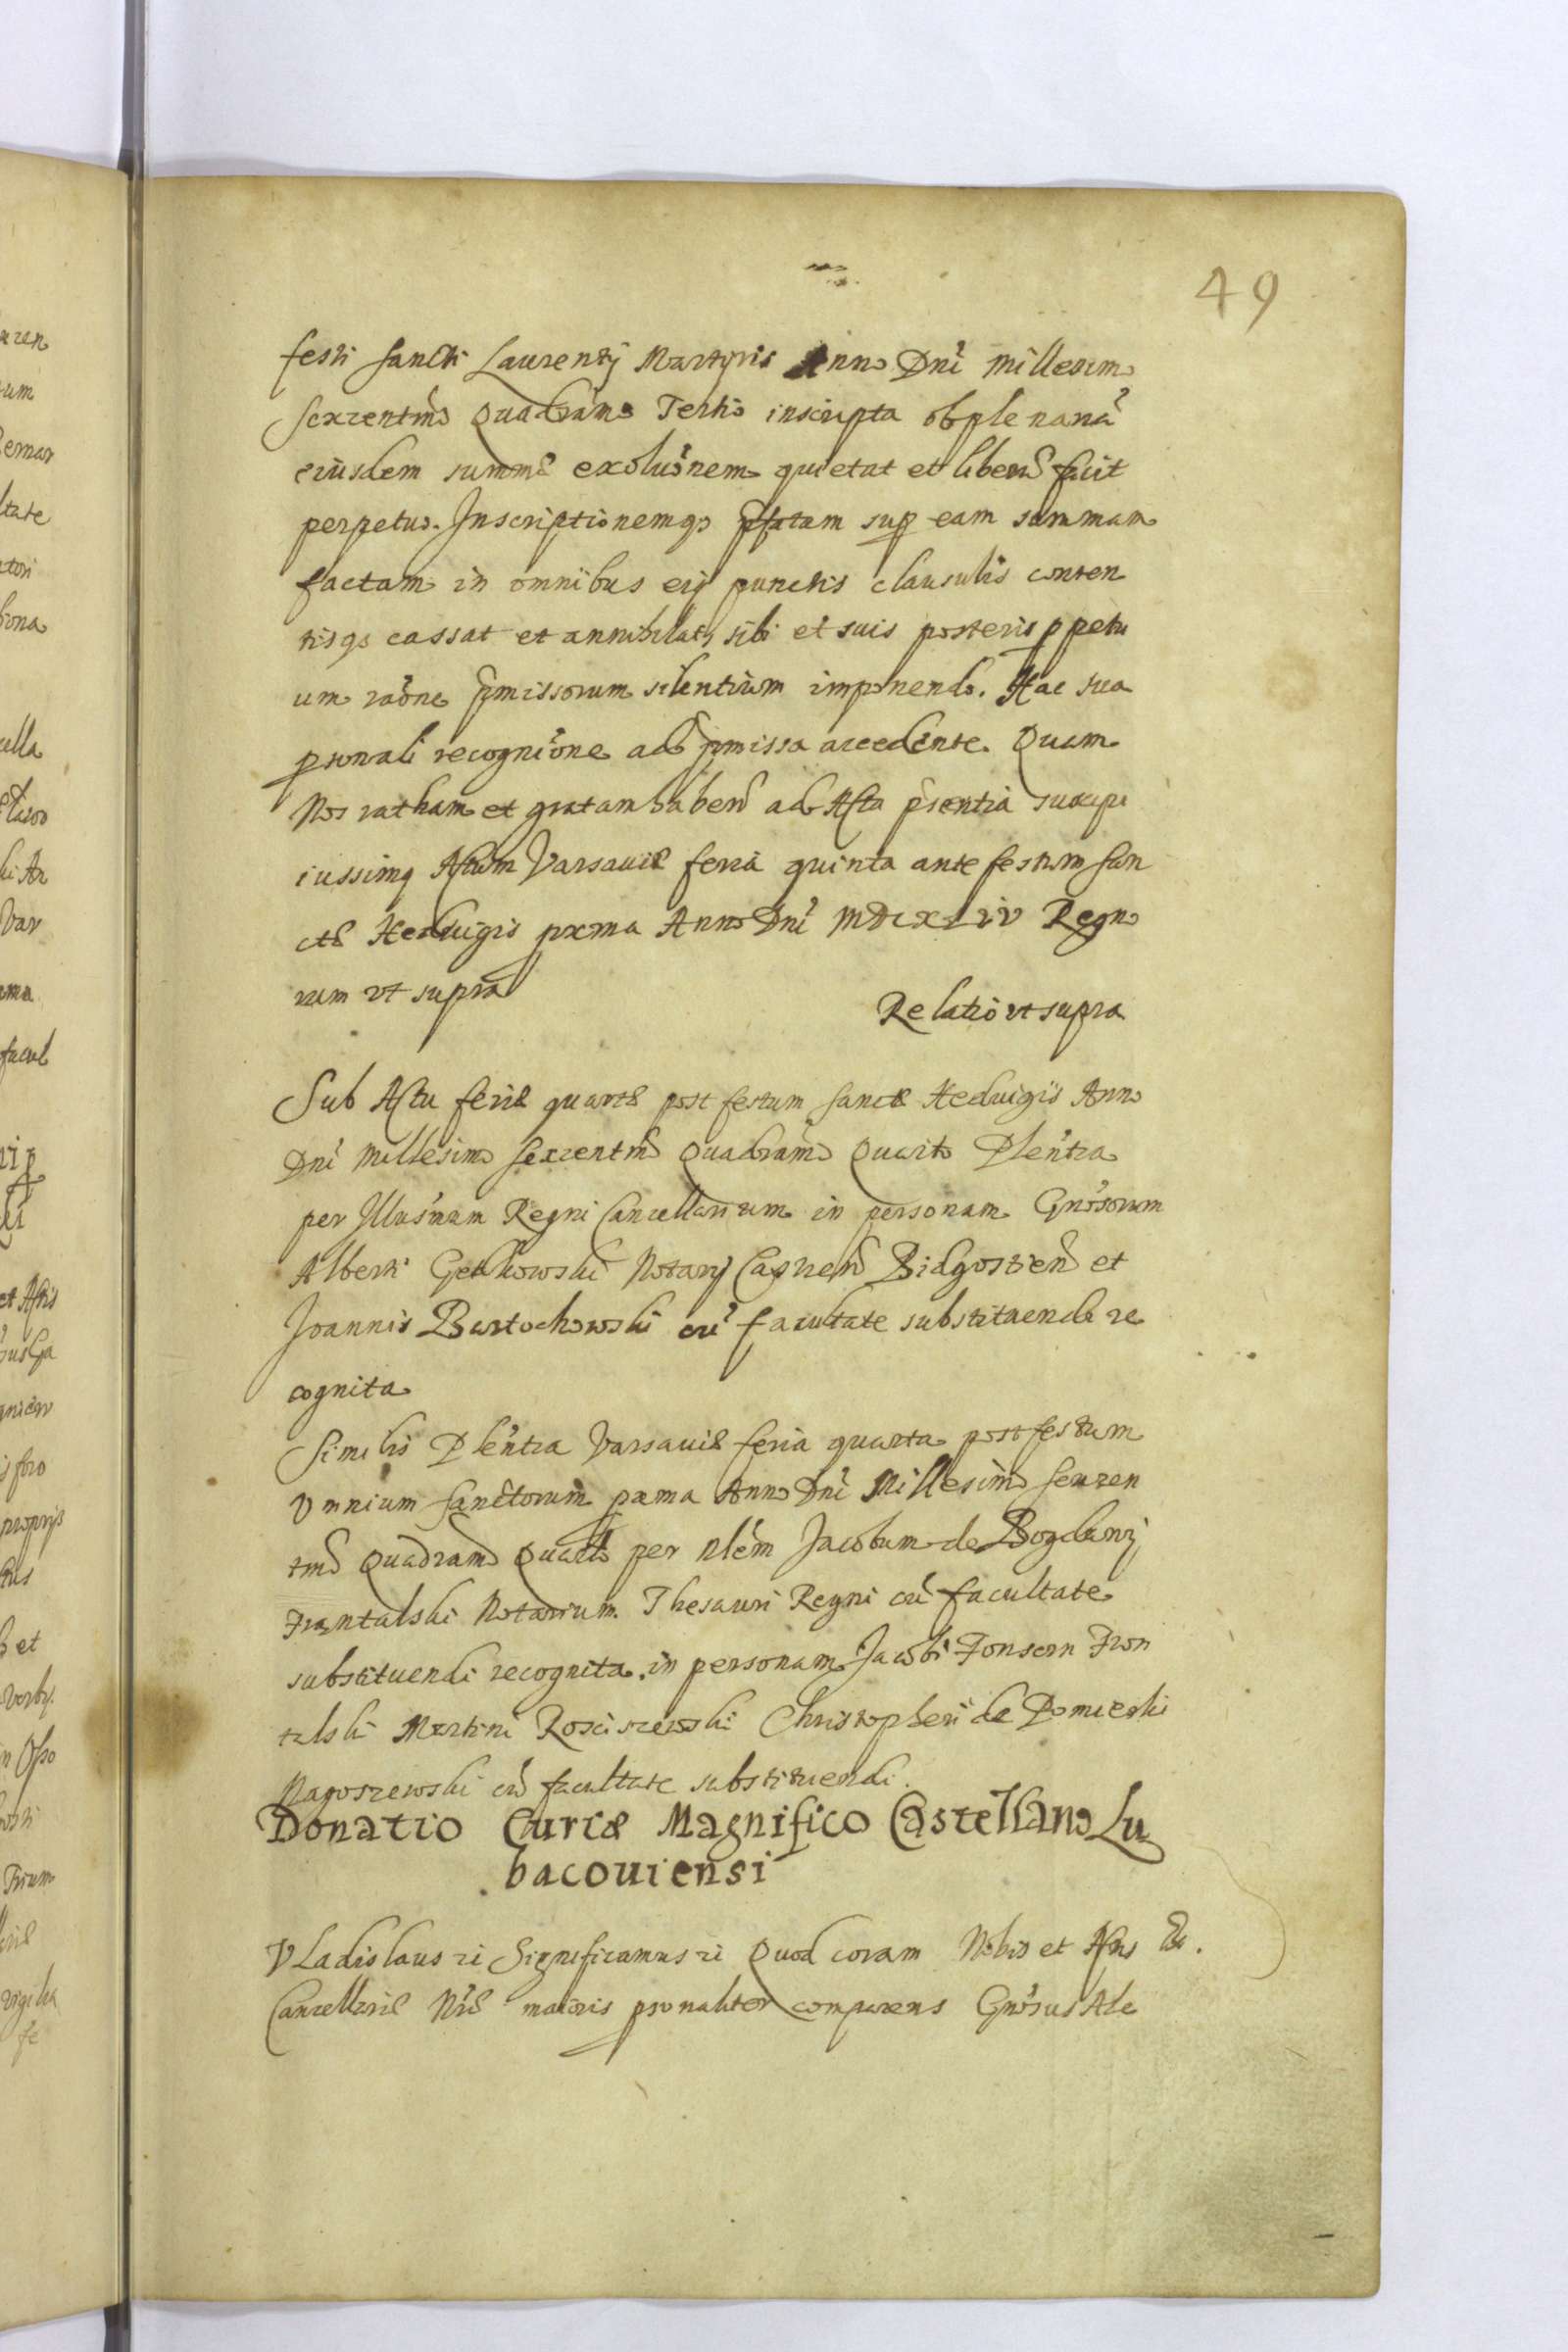 49
festi Sancti Laurentij Martyris Anno Dni Millesimo
Sexcentmo Quadramo Tertio inscripta ob plenariã
eiusdem summæ exoluõnem quietat et liberũ facit
perpetuo. Inscriptionemqȝ pfatam sup eam summam
factam in omnibus eiȷ punctis clausulis conten
tisqȝ cassat et annihilat, sibi et suis posteris ppetu
um raõne pmissorum silentium imponendo. Hac sua
psonali recogniõne ad pmissa accedente. Quam
Nos ratham et gratam habend ad Acta psentia suscipi
iussimq Actum Varsauiæ feria quinta ante festum San
ctæ Heduigis pxma Anno Dni MDCXLIV Regno
rum vt supra
Relatio vt supra
Sub Actu feriæ quartæ post festum Sanctæ Heduigis Anno
Dni Millesimo Sexcentmo Quadramo Quarto Plentia
per Illusmum Regni Cancellarium in personam Gnosorum
Alberti Notarij Castren Bidgostien et
Joannis Bartochowski cũ facultate substituendi re
cognita
Similis Plentia Varsauiæ feria quarta post festum
Omnium Sanctorum pxma Anno Dni Millesimo Sexcen
tmo Quadramo Quarto per Nlem Jacobum de Bogdanij
Notarium Thesauri Regni cũ facultate
substituendi recognita in personam Jacobi Fron
talski Martini Rosciszewski Christopheri de
Nagoszewski cũ facultate substituendi.
Donatio Curiæ Magnifico Castellano Lu
bacouiensi
Vladislaus ꝛc Significamus ꝛc Quod coram Nobis et Actis &.
Cancellariæ Nræ maioris psonaliter comparens Gnosus Ale